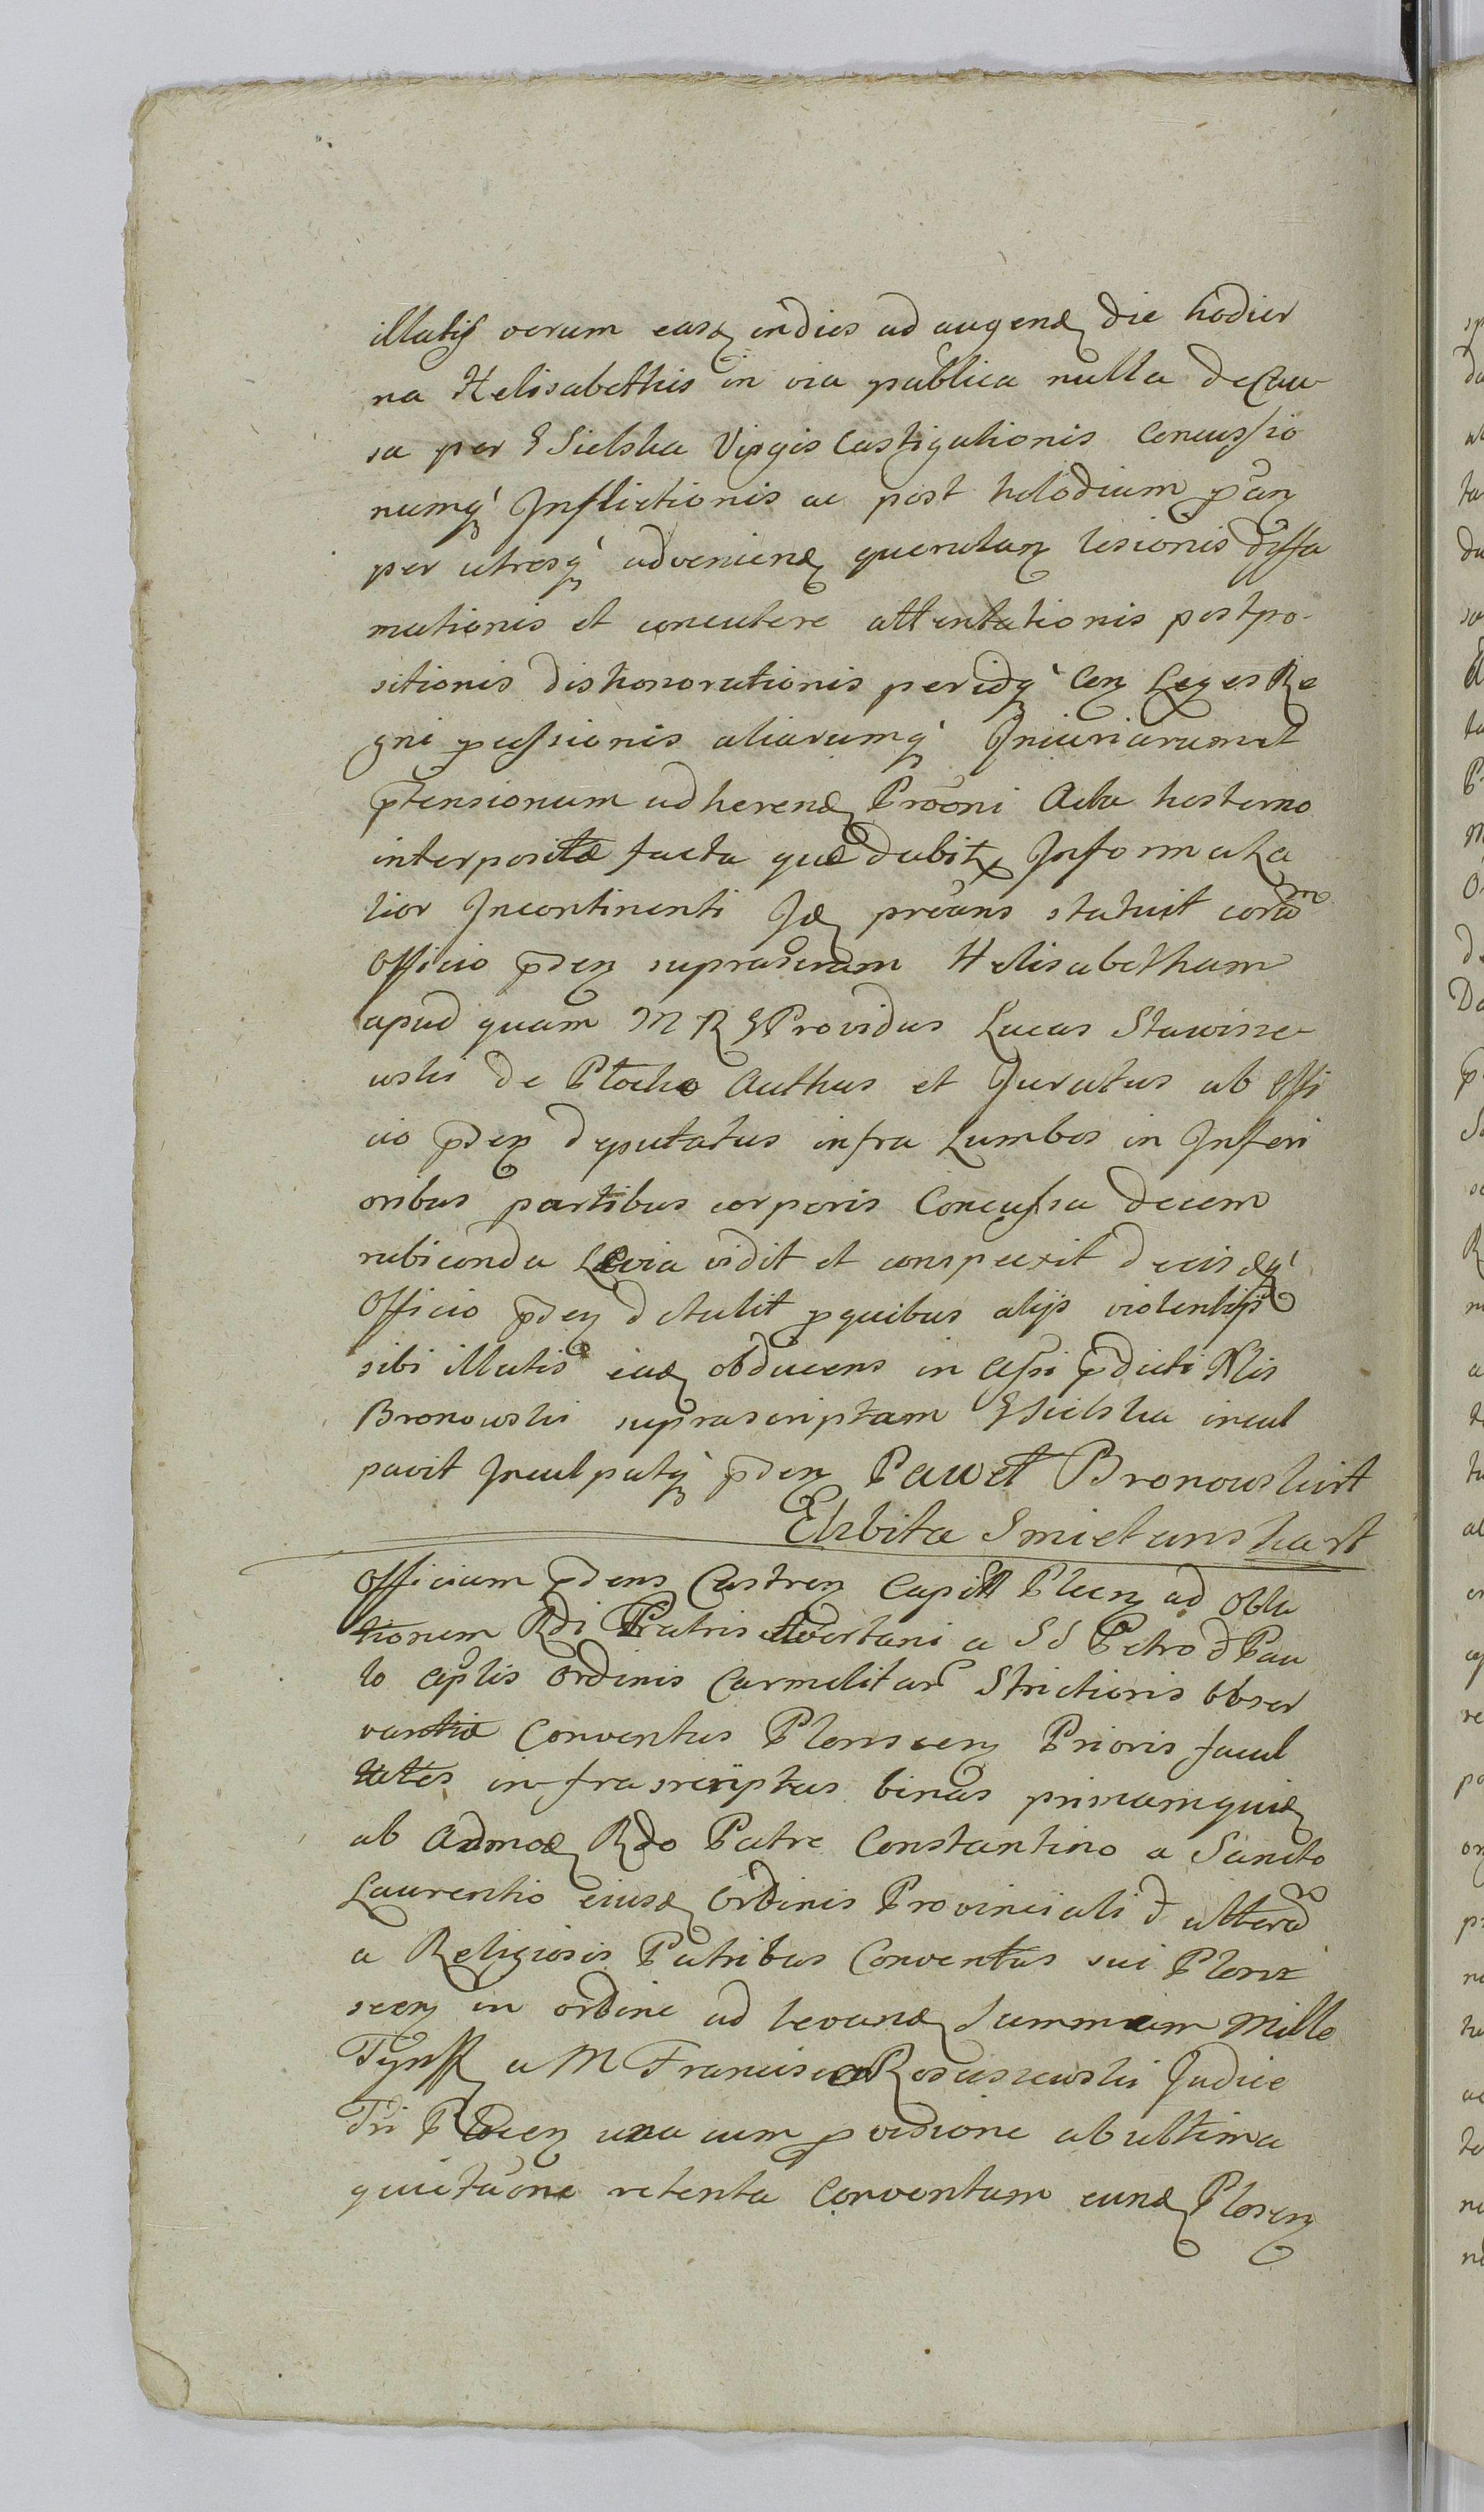 illatis verum easq indies ad augend die hodier
na Helisabethis in via publica nulla de Cau
sa per GSielska Virgis Castigationis Concussio
numq Inflictionis ac post helodium
per utrosq advenien querulan lesionis diffa
mationis et concutere attentationis postpo-
sitionis dishonorationis peridq Cen Leges Re
gni pcussionis aliarumq Iniuriarum et
ptensionum adheren Proõni Acta hesterno
interpositæ facta quæ dabit Informata
tior Incontinenti Id prõans statuit coram
Officio pden suprascram Helisabetham
apud quam M R GProvidus Lucas Stawisze
wski de Plocko Authus et Juratus ab Offi
cio pden deputatus infra Lumbos in Inferi
oribus partibus corporis Concussa decem
rubiconda Levia vidit et conspexit deeisdq
Officio pden detulit pquibus alijs violentijsq
sibi illatis ead obducens in assi pdicti Nlis
Bronowski suprascriptam GSielska incul
pavit Inculpatq pden Paweł Bronowski rt
Elzbita Smietanska rt
Officium pdens Castren Capitt Plocen ad Obla
tionem Rdi Patris a SS Petro & Pau
lo aplis Ordinis Carmelitar Strictioris Obser
vantiæ Conventus Plonscen Prioris facul
tates infrascriptas binas primamquid
ab Admod Rdo Patre Constantino a Sancto
Laurentio eiusd Ordinis Provinciali & alteram
a Religiosis Patribus Conventus sui Plons
scen in ordine ad levand Summam Mille
Tynff a M Francisco Rosciszewski Judice
Tri Plocen una cum pvisione ab ultima
quietaõne retenta Conventum eund Plonscen